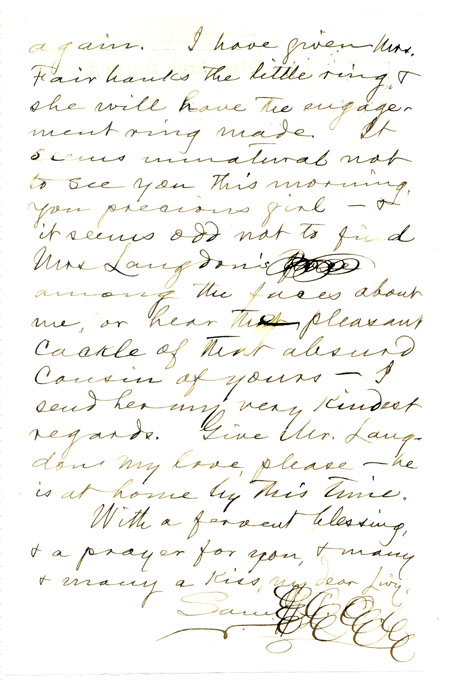 again. I have given Mrs.
Fairbanks the little ring, &
she will have the engage-
ment ring made. It
seems unnatural not
to see you this morning,
you precious girl — &
it seems odd not to find
Mrs Langdon's
among the faces about
me, or hear that pleasant
cackle of that absurd
cousin of yours — I
send her my very kindest
regards. Give Mr. Lang-
don my love, please — he
is at home by this time.
With a fervent blessing,
& a prayer for you, & many
& many a kiss, my dear Livy.
Sam